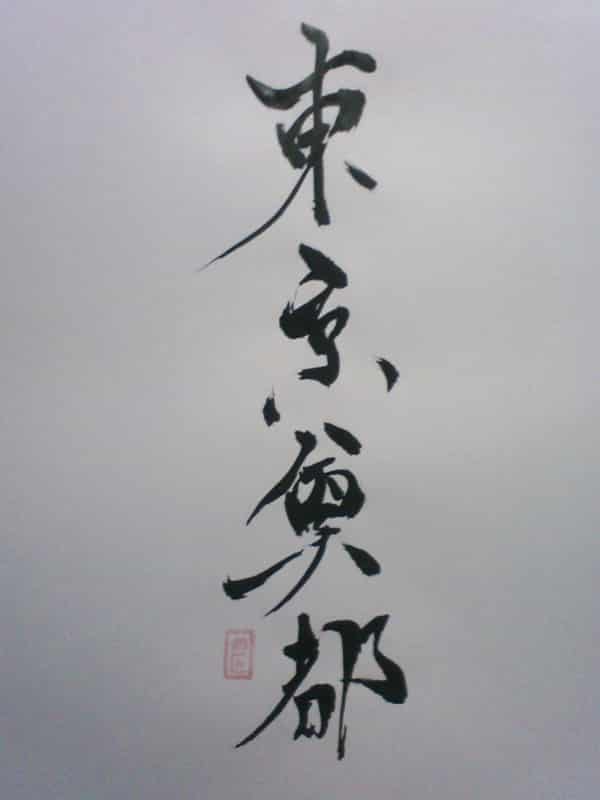 東京奠都